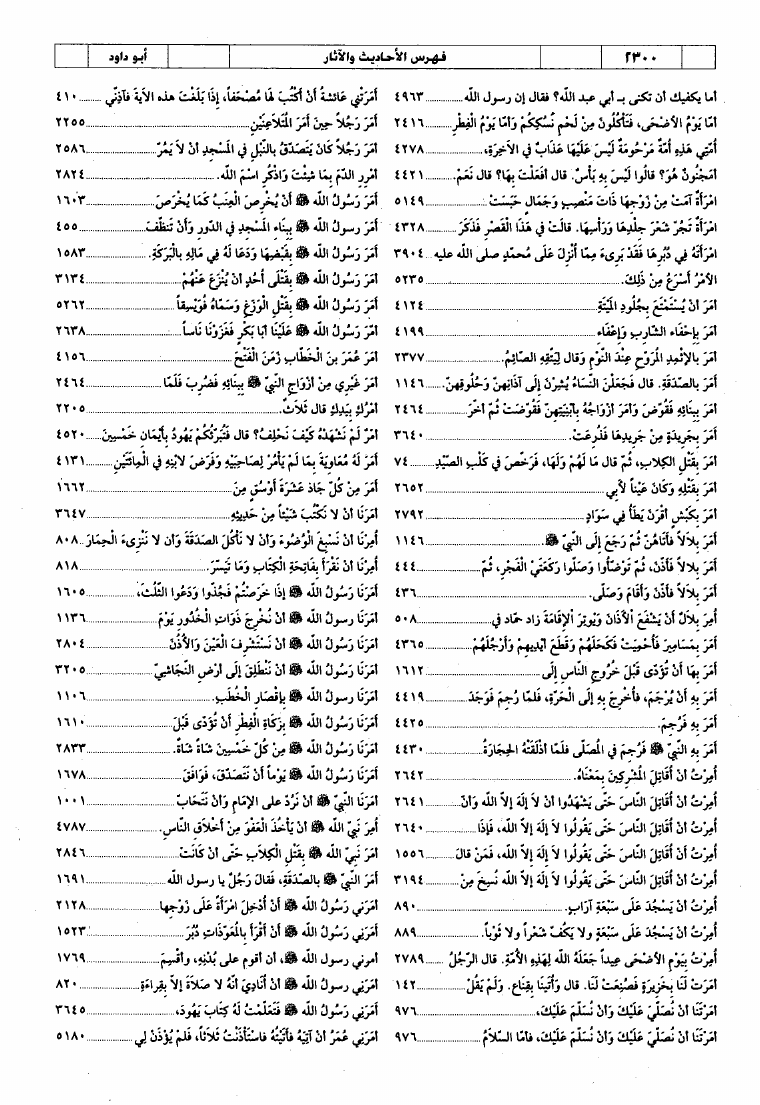 ٢٣٠٠ فهرس الأحاديث والآثار أبو داود
أما يكفيك أن تكنى بـ أبي عبد الله؟ فقال إن رسول الله ٤٩٦٣
أمَّا يَوْمُ الأضْحَى، فَتَأْكُلُونَ مِنْ لَحْمِ نُسُكِكُمْ وَأمَّا يَوْمُ الْفِطْرِ ٢٤١٦
أُمَّتِي هَذِهِ أُمَّةٌ مَرْحُومَةٌ لَيْسَ عَلَيْهَا عَذَابٌ في الآخِرَةِ، ٤٢٧٨
أمَجْنُونٌ هُوَ؟ قالُوا لَيْسَ بِهِ بَأْسٌ. قال أفَعَلْتَ بِهَا؟ قال نَعَمْ. ٤٤٢١
امْرَأةٌ آمَتْ مِنْ زَوْجِهَا ذَاتَ مَنْصِبٍ وَجَمَالٍ حَبَسَتْ ٥١٤٩
امْرَأةٌ تَجُرُّ شَعْرَ جِلْدِهَا وَرَأسِهَا. قالَتْ في هَذَا الْقَصْرِ فَذَكَرَ ٤٣٢٨
امْرَأتَهُ في دُبُرِهَا فَقَدْ بَرِىءَ مِمَّا أُنْزِلَ عَلَى مُحمَّدٍ صلى الله عليه ٣٩٠٤
الأمْرُ أسْرَعُ مِنْ ذَلِكَ. ٥٢٣٥
أمَرَ أنْ يُسْتَمْتَعَ بِجُلُودِ المَيْتَةِ ٤١٢٤
أمَرَ بِإحْفَاءِ الشَّارِبِ وَإعْفَاءِ ٤١٩٩
أمَرَ بالإثْمِدِ المُرَوَّحِ عِنْدَ النَّوْمِ وَقال لِيَتَّقِهِ الصَّائِمُ. ٢٣٧٧
أمَرَ بالصَّدَقَةِ. قال فَجَعَلْنَ النِّسَاءُ يُشِرْنَ إلَى آذَانِهِنَّ وَحُلُوقِهِنَّ. ١١٤٦
أمَرَ بِبِنَائِهِ فَقُوِّضَ وَأمَرَ أزْوَاجُهُ بِأبْنِيَتِهِنَّ فَقُوِّضَتْ ثُمَّ أخَّرَ ٢٤٦٤
أمَرَ بِجَرِيدَةٍ مِنْ جَرِيدِهَا فَذُرِعَتْ. ٣٦٤٠
أمَرَ بِقَتْلِ الكِلَابِ، ثُمَّ قال مَا لَهُمْ وَلَهَا، فَرَخَّصَ في كَلْبِ الصَّيْدِ ٧٤
أمَرَ بِقَتْلِهِ وَكَانَ عَيْناً لأبي ٢٦٥٢
أمَرَ بِكَبْشٍ أقْرَنَ يَطَأُ في سَوَادٍ ٢٧٩٢
أمَرَ بِلَالاً فأتَاهُنَّ ثُمَّ رَجَعَ إلَى النَّبِيِّ ﷺ. ١١٤٦
أمَرَ بِلَالاً فأذَّنَ، ثُمَّ تَوَضَّأُوا وَصَلَّوا رَكْعَتَي الْفَجْرِ، ثُمَّ ٤٤٤
أمَرَ بِلَالاً فأذَّنَ وَأقَامَ وَصَلَّى. ٤٣٦
أُمِرَ بِلَالٌ أنْ يَشْفَعَ الأذَانَ وَيُوتِرَ الْإقَامَةَ زاد حمّاد في ٥٠٨
أمَرَ بِمَسَامِيرَ فَأُحْمِيَتْ فَكَحَلَهُمْ وَقَطَعَ أيْدِيهِمْ وَأرْجُلَهُمْ ٤٣٦٥
أمَرَ بِهَا أنْ تُؤَدَّى قَبْلَ خُرُوجِ النَّاسِ إلَى ١٦١٢
أمَرَ بِهِ أنْ يُرْجَمَ، فأُخْرِجَ بِهِ إلَى الْحَرَّةِ، فَلمَّا رُجِمَ فَوَجَدَ ٤٤١٩
أمَرَ بِهِ فَرُجِمَ. ٤٤٢٥
أمَرَ بِهِ النَّبيُّ ﷺ فَرُجِمَ في المُصَلَّى فَلمَّا أذْلَقَتْهُ الْحِجَارَةُ ٤٤٣٠
أُمِرْتُ أنْ أُقَاتِلَ المُشْرِكِينَ بِمَعْنَاهُ. ٢٦٤٢
أُمِرْتُ أنْ أُقَاتِلَ النَّاسَ حَتَّى يَشْهَدُوا أنْ لَا إلَهَ إلاَّ الله وَأنَّ ٢٦٤١
أُمِرْتُ أنْ أُقَاتِلَ النَّاسَ حَتَّى يَقُولُوا لَا إلَهَ إلاَّ الله، فَإذَا ٢٦٤٠
أُمِرْتُ أنْ أُقَاتِلَ النَّاسَ حَتَّى يَقُولُوا لَا إلَهَ إلاَّ الله، فَمَنْ قال ١٥٥٦
أُمِرْتُ أنْ أُقَاتِلَ النَّاسَ حَتَّى يَقُولُوا لَا إلَهَ إلاَّ الله نُسِخَ مِنْ ٣١٩٤
أُمِرْتُ أنْ يَسْجُدَ عَلَى سَبْعَةِ آرَابٍ. ٨٩٠
أُمِرْتُ أنْ يَسْجُدَ عَلَى سَبْعَةٍ وَلا يَكُفَّ شَعْراً ولا ثَوْباً. ٨٨٩
أُمِرْتُ بِيَوْمِ الأضْحَى عِيداً جَعَلَهُ الله لِهَذِهِ الأُمَّةِ. قال الرَّجُلُ ٢٧٨٩
أمَرَتْ لَنَا بِخَزِيرَةٍ فَصُنِعَتْ لَنَا. قال وَأُتِينَا بِقِنَاعٍ. وَلَمْ يَقُلْ ١٤٢
أمَرْتَنَا أنْ نُصَلِّيَ عَلَيْكَ وَأنْ نُسَلِّمَ عَلَيْكَ، ٩٧٦
أمَرْتَنَا أنْ نُصَلِّيَ عَلَيْكَ وَأنْ نُسَلِّمَ عَلَيْكَ، فأمَّا السَّلَامُ ٩٧٦
أمَرَتْنِي عَائشةُ أنْ أكْتُبَ لَهَا مُصْحَفاً، إذَا بَلَغْتَ هذه الآيةَ فآذِنِّي ٤١٠
أمَرَ رَجُلاً حِينَ أمَرَ المُتَلَاعِنَيْنِ ٢٢٥٥
أمَرَ رَجُلاً كَانَ يَتَصَدَّقُ بالنَّبْلِ في المَسْجِدِ أنْ لَا يَمُرَّ ٢٥٨٦
أمْرِرِ الدَّمَ بِمَا شِئْتَ وَاذْكُرِ اسْمَ الله. ٢٨٢٤
أمَرَ رَسُولُ الله ﷺ أنْ يُخْرَصَ الْعِنَبُ كَمَا يُخْرَصُ ١٦٠٣
أمَرَ رسولُ الله ﷺ بِبِنَاءِ المَسْجِدِ في الدُّورِ وَأنْ تُنَظَّفَ ٤٥٥
أمَرَ رَسُولُ الله ﷺ بِقَبْضِهَا وَدَعَا لَهُ في مَالِهِ بالْبَرَكَةِ. ١٥٨٣
أمَرَ رَسُولُ الله ﷺ بِقَتْلَى أُحُدٍ أنْ يُنْزَعَ عَنْهُمْ ٣١٣٤
أمَرَ رَسُولُ الله ﷺ بِقَتْلِ الْوَزَغِ وَسَمَّاهُ فُوَيْسِقاً ٥٢٦٢
أمَّرَ رَسُولُ الله ﷺ عَلَيْنَا أبَا بَكْرٍ فَغَزَوْنَا نَاساً ٢٦٣٨
أمَرَ عُمَرَ بنَ الْخَطَّابِ زَمَنَ الْفَتْحِ ٤١٥٦
أمَرَ غَيْرِي مِنْ أزْوَاجِ النَّبيِّ ﷺ بِبِنَائِهِ فَضُرِبَ فَلَمَّا ٢٤٦٤
أمْرُكِ بِيَدِكِ قال ثَلَاثٌ. ٢٢٠٥
أمْرٌ لَمْ نَشْهَدْهُ كَيْفَ نَحْلِفُ؟ قال فَتُبَرِّئُكُمْ يَهُودُ بِأيْمَانِ خَمْسِينَ ٤٥٢٠
أمَرَ لَهُ مُعَاوِيَةُ بِمَا لَمْ يَأْمُرْ لِصَاحِبَيْهِ وَفَرَضَ لابْنِهِ في الْمِائَتَيْنِ ٤١٣١
أمَرَ مِنْ كُلِّ جَادِّ عَشَرَةِ أوْسُقٍ مِنَ ١٦٦٢
أمَرَنَا أنْ لَا نَكْتُبَ شَيْئاً مِنْ حَدِيثِهِ ٣٦٤٧
أُمِرْنَا أنْ نُسْبِغَ الْوُضُوءَ وَأنْ لَا نَأْكُلَ الصَّدَقَةَ وَأن لَا نُنْزِيَءَ الْحِمَارَ ٨٠٨
أُمِرْنَا أنْ نَقْرَأَ بِفَاتِحَةِ الْكِتَابِ وَمَا تَيَسَّرَ. ٨١٨
أمَرَنَا رَسُولُ الله ﷺ إذَا خَرَصْتُمْ فَجُذُّوا وَدَعُوا الثُّلُثَ، ١٦٠٥
أمَرَنَا رسولُ الله ﷺ أنْ نُخْرِجَ ذَوَاتِ الْخُدُورِ يَوْمَ ١١٣٦
أمَرَنَا رسولُ الله ﷺ أنْ نَسْتَشْرِفَ الْعَيْنَ وَالأُذُنَ ٢٨٠٤
أمَرَنَا رَسُولُ الله ﷺ أنْ نَنْطَلِقَ إلَى أرْضِ النَّجَاشِيِّ ٣٢٠٥
أمَرَنَا رسولُ الله ﷺ بإقْصَارِ الْخُطَبِ. ١١٠٦
أمَرَنَا رَسُولُ الله ﷺ بِزَكَاةِ الْفِطْرِ أنْ تُؤَدَّى قَبْلَ ١٦١٠
أمَرَنَا رَسُولُ الله ﷺ مِنْ كُلِّ خَمْسِينَ شَاةً شَاةٌ. ٢٨٣٣
أمَرَنَا رَسُولُ الله ﷺ يَوْماً أنْ نَتَصَدَّقَ، فَوَافَقَ ١٦٧٨
أمَرَنَا النَّبيُّ ﷺ أنْ نَرُدَّ على الإمَامِ وَأنْ نَتَحَابَّ ١٠٠١
أُمِرَ نَبيُّ الله ﷺ أنْ يَأْخُذَ الْعَفْوَ مِنْ أخْلَاقِ النَّاسِ. ٤٧٨٧
أمَرَ نَبيُّ الله ﷺ بِقَتْلِ الْكِلَابِ حَتَّى أنْ كَانَتْ ٢٨٤٦
أمَرَ النَّبيُّ ﷺ بالصَّدَقَةِ، فَقالَ رَجُلٌ يا رسول الله ١٦٩١
أمَرَنِي رَسُولُ الله ﷺ أنْ أُدْخِلَ امْرَأةً عَلَى زَوْجِها ٢١٢٨
أمَرَنِي رسولُ الله ﷺ أنْ أقْرَأَ بالمُعَوِّذَاتِ دُبُرَ ١٥٢٣
أمرني رسول الله ﷺ، أن أقوم على بُدْنِهِ، وأقْسِمَ ١٧٦٩
أمَرَنِي رسولُ الله ﷺ أنْ أُنَادِيَ أنَّهُ لَا صَلَاةَ إلاَّ بِقِراءَةِ ٨٢٠
أمَرَنِي رَسُولُ الله ﷺ فَتَعَلَّمْتُ لَهُ كِتَابَ يَهُودَ، ٣٦٤٥
أمَرَنِي عُمَرُ أنْ آتِيَهُ فأتَيْتُهُ فَاسْتَأْذَنْتُ ثَلاثاً، فَلَمْ يُؤْذَنْ لِي ٥١٨٠